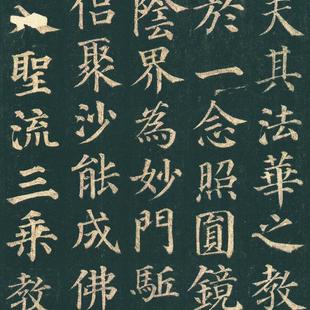 夫其法華之教
扵一念照圓鏡
陰界為妙門駈
侶聚沙能成佛
聖流三乘教